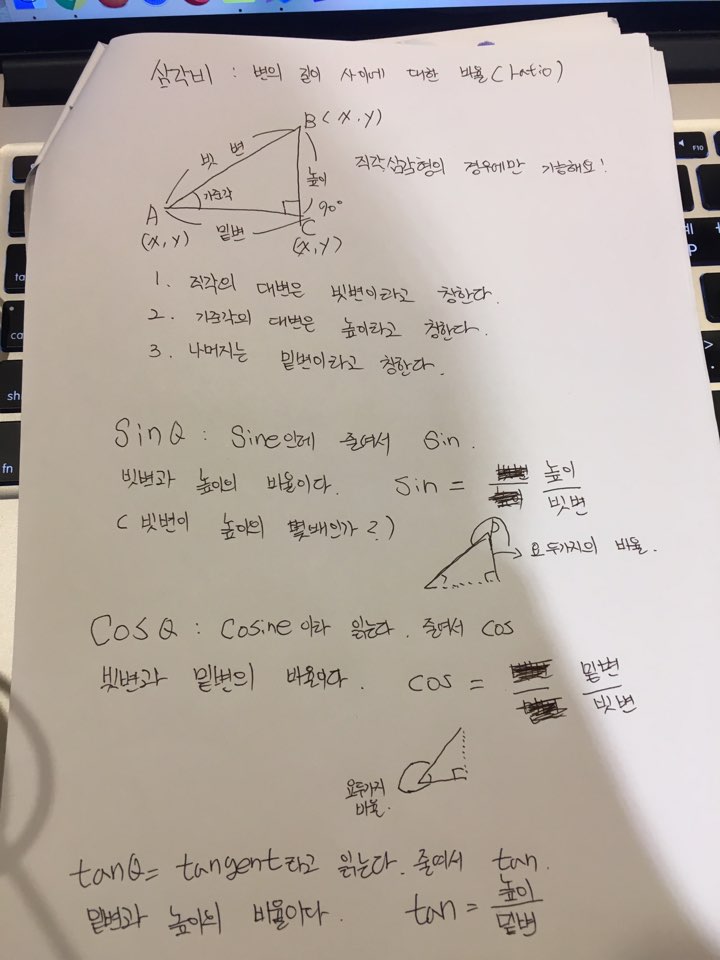 삼각비 : 변의 길이 사이에 대한 비율(ratio)
B(x, y)
빗 변
높이
직각삼각형의 경우에만 가능해요!
기준각
90°
A
C
(x, y)
밑변
(x, y)
1. 직각의 대변은 빗변이라고 칭한다.
2. 기준각의 대변은 높이라고 칭한다.
3. 나머지는 밑변이라고 칭한다.
Sinθ : Sine인데 줄여서 Sin.
빗변과 높이의 비율이다. Sin = 높이/빗변
( 빗변이 높이의 몇배인가?)
요 두가지의 비율.
Cosθ : Cosine이라 읽는다. 줄여서 cos
빗변과 밑변의 비율이다. cos = 밑변/빗변
요두가지
비율.
tanθ= tangent라고 읽는다. 줄여서 tan.
밑변과 높이의 비율이다. tan = 높이/밑변
F10
fn